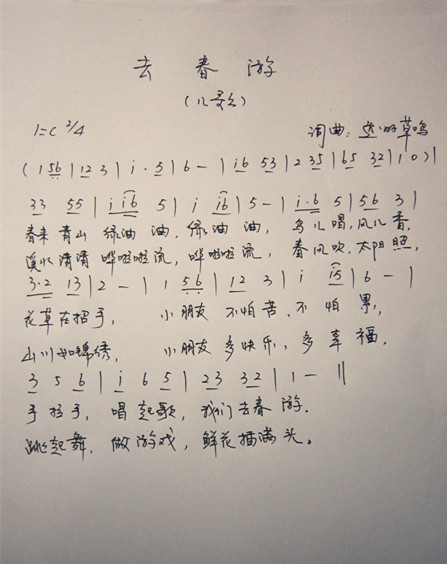 去春游
（儿歌）
1=C 2/4
词曲： 草鸣
（1 56 | 12 3 | i · 5 | 6 - | i6 53 | 2 35 | 65 32 | 1 0）|
33 55 | i i6 5 | i i6 | 5 - | i·6 5 | 56 3 |
春来 青山 绿油油，绿油油，鸟儿唱，风儿香，
溪水清清 哗啦啦流，哗啦啦流，春风吹，太阳照，
3·2 13 | 2 - | 1 56 | 12 3 | i i5 | 6 - |
花草在招手， 小朋友 不怕苦，不怕累，
山川如锦绣， 小朋友 多快乐，多幸福，
3 5 6 | i 6 5 | 23 32 | 1 - ||
手拉手，唱起歌，我们去春游．
跳起舞，做游戏，鲜花插满头。